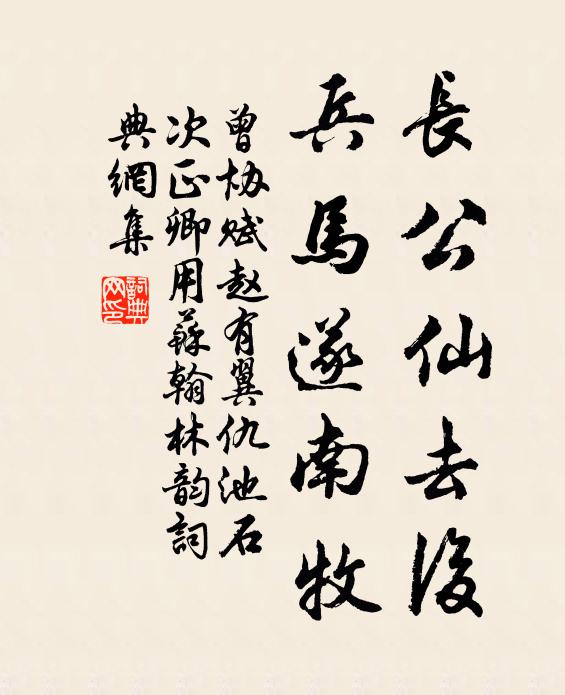 長公仙去後
兵馬遂南牧
曾協赋赵有翼仇池石
次正卿用蘇翰林韵詞
典網集
詞典
网印